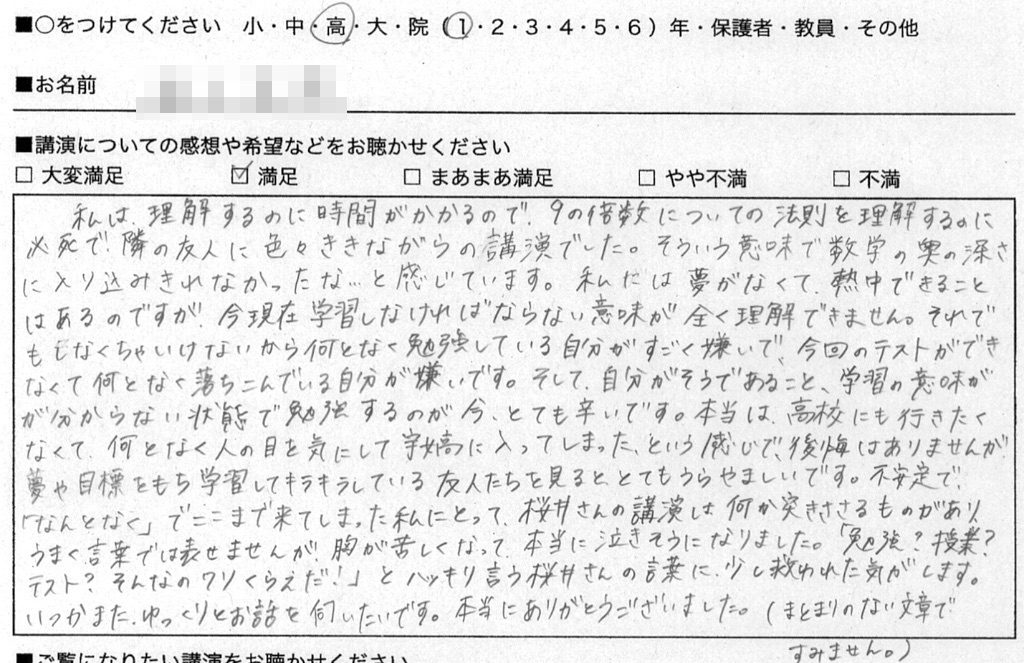 ■○をつけてください 小・中・高・大・院（1・2・3・4・5・6）年・保護者・教員・その他
■お名前
■講演についての感想や希望などをお聴かせください
□ 大変満足 ☑ 満足 □ まあまあ満足 □ やや不満 □ 不満
私は、理解するのに時間がかかるので、9の倍数についての法則を理解するのに
必死で、隣の友人に色々ききながらの講演でした。そういう意味で数学の奥の深さ
に入り込みきれなかったな…と感じています。私には夢がなくて、熱中できること
はあるのですが、今現在学習しなければならない意味が全く理解できません。それで
もしなくちゃいけないから何となく勉強している自分がすごく嫌いで、今回のテストができ
なくて何となく落ちこんでいる自分が嫌いです。そして、自分がそうであること、学習の意味が
が分からない状態で勉強するのが今、とても辛いです。本当は、高校にも行きたく
なくて、何となく人の目を気にして宇高に入ってしまった、という感じで、後悔はありませんが
夢や目標をもち学習してキラキラしている友人たちを見ると、とてもうらやましいです。不安定で、
「なんとなく」でここまで来てしまった私にとって、桜井さんの講演は何か突きささるものがあり、
うまく言葉では表せませんが、胸が苦しくなって、本当に泣きそうになりました。「勉強？授業？
テスト？そんなのクソくらえだ！」とハッキリ言う桜井さんの言葉に、少し救われた気がします。
いつかまた、ゆっくりとお話を伺いたいです。本当にありがとうございました。（まとまりのない文章で
すみません。）
■ご覧になりたい講演をお聴かせください